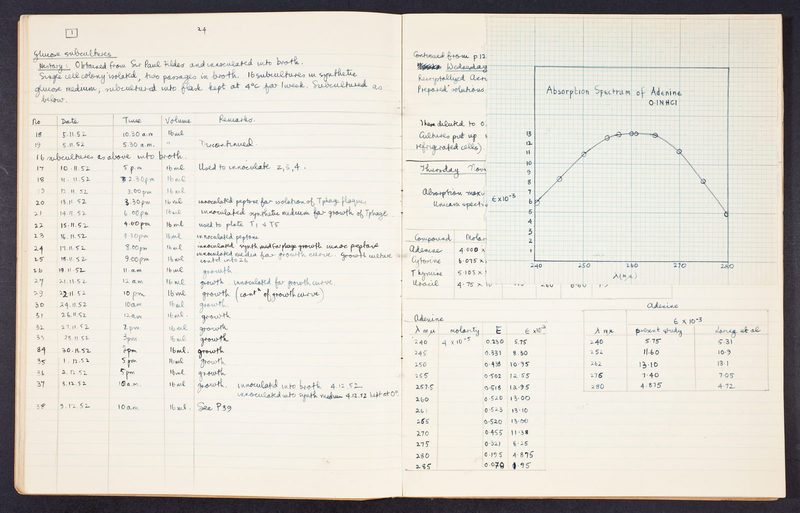 1
24
Glucose subcultures
History: Obtained from Sir Paul Fildes and innoculated into broth.
Single cell colony isolated, two passages in broth. 16 subcultures in synthetic
glucose medium, subcultured into flask kept at 4°C for 1 week. Subcultured as
below.
No Date Time Volume Remarks.
18 5.11.52 10.30 a.m 16 ml
19 5.11.52 5.30 a.m. " Discontinued.
16 subcultures as above into broth.
17 10.11.52 5 p.m 16 ml Used to innoculate 2, 3, 4.
18 11.11.52 2.30pm 16 ml
19 12.11.52 3.00pm 16 ml
20 13.11.52 3.30pm 16 ml innoculated peptone for isolation of T phage plaques
21 14.11.52 6.00pm 16 ml innoculated synthetic medium for growth of T phage
22 15.11.52 4.00pm 16 ml used to plate T1 & T5
23 16.11.52 16 ml innoculated peptone
24 17.11.52 8.00pm 16 ml innoculated synth med for phage growth innoc peptone
25 18.11.52 9.00pm 16 ml innoculated media for growth curve. Growth culture
contd into 26
26 19.11.52 11 am 16 ml growth
27 21.11.52 12 am 16 ml growth innoculated for growth curve
29 22.11.52 10 pm 16 ml growth (contn of growth curve)
30 24.11.52 10am 16 ml growth
31 26.11.52 12am 16 ml. growth
32 27.11.52 2pm 16 ml growth
33 28.11.52 3pm 16 ml growth
34 30.11.52 3pm 16 ml. growth
35 1.12.52 5pm 16 ml growth
36 2.12.52 5pm 16 ml growth
37 3.12.52 10a.m. 16 ml growth. innoculated into broth 4.12.52
innoculated into synth medium 4.12.52 left at 0°
38 5.12.52 10am 16 ml. See P39
Continued from p.12
Wednesday
Recrystallised
Prepared solutions
Then diluted to 0.
Cultures put up
refrigerated cells)
Thursday Nov
Absorption maxi
Unicam spectr
Absorption Spectrum of Adenine
0.1N HCl
13
12
11
10
9
8
7
6
5
4
3
2
1
ε × 10⁻³
240 250 260 270 280
λ (mμ)
Compound Molar
Adenine 4.008 ×
Cytosine 6.075 ×
Thymine 5.103 ×
Uracil 4.75 × 10
Adenine
λ mμ molarity E ε × 10⁻³
240 4 × 10⁻⁵ 0.230 5.75
245 0.331 8.30
250 0.438 10.95
255 0.502 12.55
257.5 0.518 12.95
260 0.520 13.00
261 0.523 13.10
265 0.520 13.00
270 0.455 11.38
275 0.321 8.25
280 0.195 4.875
285 0.078 1.95
Adenine
ε × 10⁻³
λ mμ present study Loring et al
240 5.75 5.31
252 11.60 10.9
262 13.10 13.1
276 7.40 7.05
280 4.875 4.72